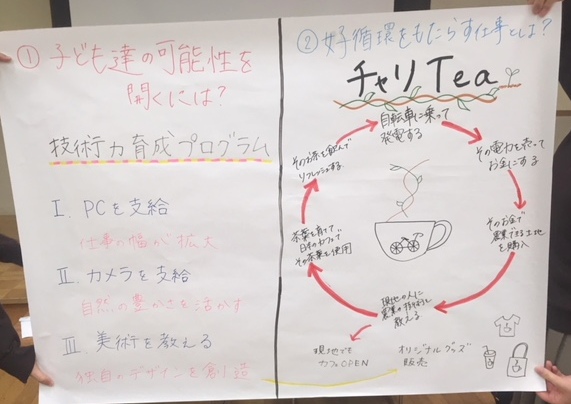 ① 子ども達の可能性を
開くには?
技術力育成プログラム
I. PCを支給
仕事の幅が拡大
II. カメラを支給
自然の豊かさを活かす
III. 美術を教える
独自のデザインを創造
② 好循環をもたらす仕事とは?
チャリTea
自転車に乗って
発電する
その電力を売って
お金にする
そのお金で
農業できる土地
を購入
現地の人に
農業の技術を
教える
茶葉を育て
日本のカフェで
その茶葉を使用
そのお茶を飲んで
リフレッシュする
現地でも
カフェOPEN
オリジナルグッズ
販売